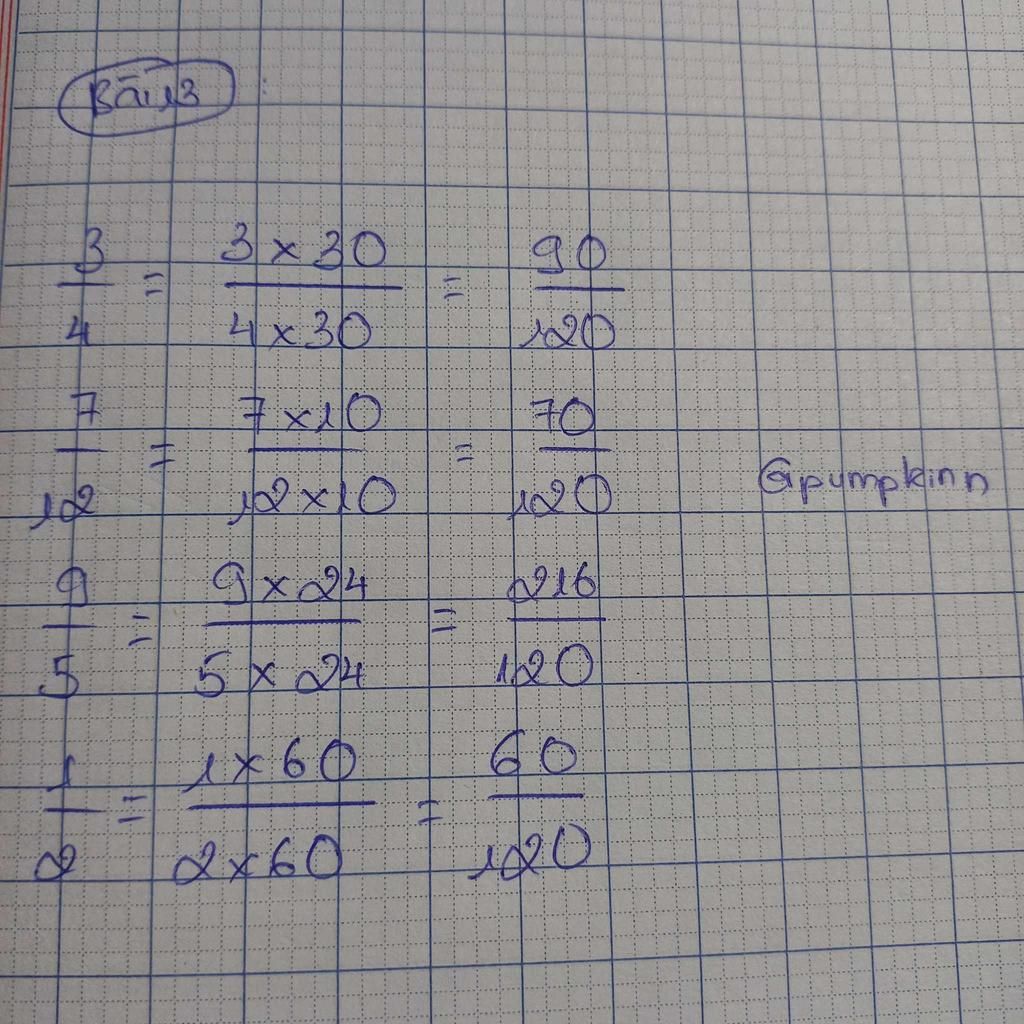 Bài 3 :
3/4 = 3 x 30 / 4 x 30 = 90/120
7/12 = 7 x 10 / 12 x 10 = 70/120
Gpumpkinn
9/5 = 9 x 24 / 5 x 24 = 216/120
1/2 = 1 x 60 / 2 x 60 = 60/120